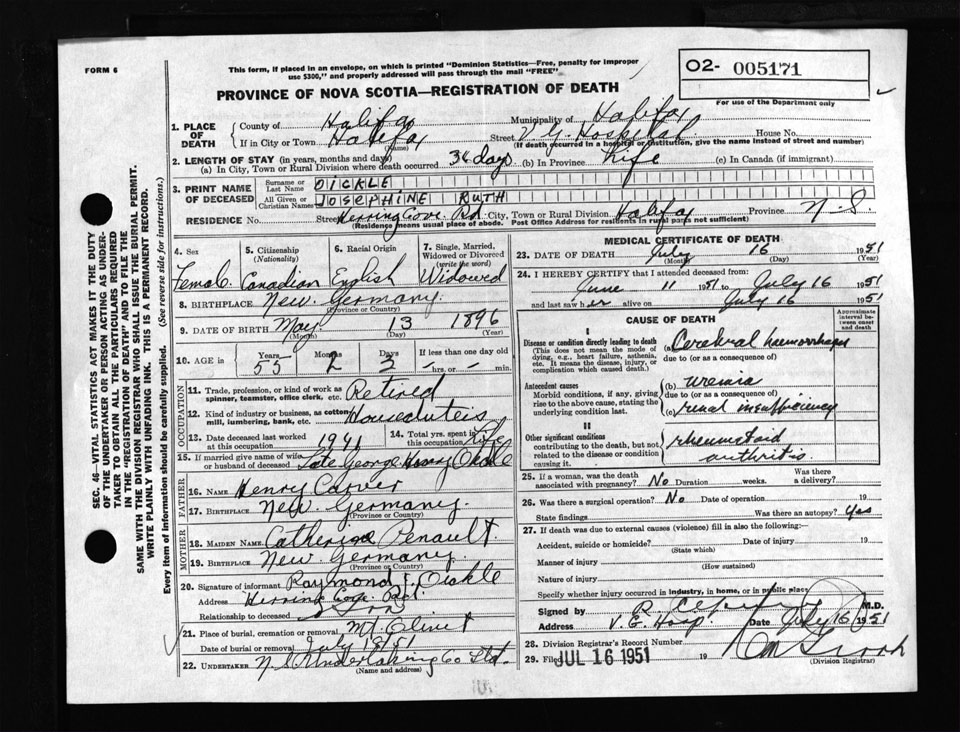 FORM 6
This form, if placed in an envelope, on which is printed "Dominion Statistics—Free, penalty for improper
use $300," and properly addressed will pass through the mail "FREE"
O2- 005171
For use of the Department only
PROVINCE OF NOVA SCOTIA—REGISTRATION OF DEATH
1. PLACE OF DEATH
County of Halifax Municipality of Halifax
If in City or Town Halifax (Name) Street V. G. Hospital House No.
(If death occurred in a hospital or institution, give the name instead of street and number)
2. LENGTH OF STAY (in years, months and days)
(a) In City, Town or Rural Division where death occurred 36 days (b) In Province Life (c) In Canada (if immigrant)
3. PRINT NAME OF DECEASED
Surname or Last Name OICKLE
All Given or Christian Names JOSEPHINE RUTH
RESIDENCE No. Street Herring Cove Rd. City, Town or Rural Division Halifax Province N.S.
(Residence means usual place of abode. Post Office Address for residents in rural parts not sufficient)
4. Sex Female
5. Citizenship (Nationality) Canadian
6. Racial Origin English
7. Single, Married, Widowed or Divorced (write the word) Widowed
8. BIRTHPLACE New Germany
(Province or Country)
9. DATE OF BIRTH May 13 1896
(Month) (Day) (Year)
10. AGE in Years 55 Months 2 Days 3 If less than one day old - hrs. or - min.
OCCUPATION
11. Trade, profession, or kind of work as spinner, teamster, office clerk, etc. Retired
12. Kind of industry or business, as cotton mill, lumbering, bank, etc. Houseduties
13. Date deceased last worked at this occupation 1941
14. Total yrs. spent in this occupation Life
15. If married give name of wife or husband of deceased Late George Henry Oickle
FATHER
16. NAME Henry Carver
17. BIRTHPLACE New Germany
(Province or Country)
MOTHER
18. MAIDEN NAME Catherine
19. BIRTHPLACE New Germany
(Province or Country)
20. Signature of informant Raymond Oickle
Address Herring Cove Rd.
Relationship to deceased Son
21. Place of burial, cremation or removal Mt. Olivet
Date of burial or removal July 1951
22. UNDERTAKER N.S. Undertaking Co Ltd.
(Name and address)
MEDICAL CERTIFICATE OF DEATH
23. DATE OF DEATH July 16 1951
(Month) (Day) (Year)
24. I HEREBY CERTIFY that I attended deceased from
June 11 1951 to July 16 1951
and last saw her alive on July 16 1951
CAUSE OF DEATH
Approximate interval between onset and death
Disease or condition directly leading to death
(This does not mean the mode of dying, e.g., heart failure, asthenia, etc. It means the disease, injury, or complication which caused death.)
(a) Cerebral haemorrhage
due to (or as a consequence of)
Antecedent causes
Morbid conditions, if any, giving rise to the above cause, stating the underlying condition last.
(b) uremia
due to (or as a consequence of)
(c) renal insufficiency
II
Other significant conditions
contributing to the death, but not related to the disease or condition causing it.
rheumatoid
arthritis
25. If a woman, was the death associated with pregnancy? No Duration weeks. Was there a delivery?
26. Was there a surgical operation? No Date of operation 19
State findings Was there an autopsy? Yes
27. If death was due to external causes (violence) fill in also the following:—
Accident, suicide or homicide? (State which) Date of injury 19
Manner of injury (How sustained)
Nature of injury
Specify whether injury occurred in industry, in home, or in public place
Signed by M.D.
Address V. G. Hosp. Date July 16 1951
28. Division Registrar's Record Number
29. Filed JUL 16 1951 19
(Division Registrar)
SEC. 46—VITAL STATISTICS ACT MAKES IT THE DUTY
OF THE UNDERTAKER OR PERSON ACTING AS UNDER-
TAKER TO OBTAIN ALL THE PARTICULARS REQUIRED
IN THE "REGISTRATION OF DEATH" AND TO FILE IT
SAME WITH THE DIVISION REGISTRAR WHO SHALL ISSUE THE BURIAL PERMIT.
WRITE PLAINLY WITH UNFADING INK. THIS IS A PERMANENT RECORD.
Every item of information should be carefully supplied. (See reverse side for instructions.)